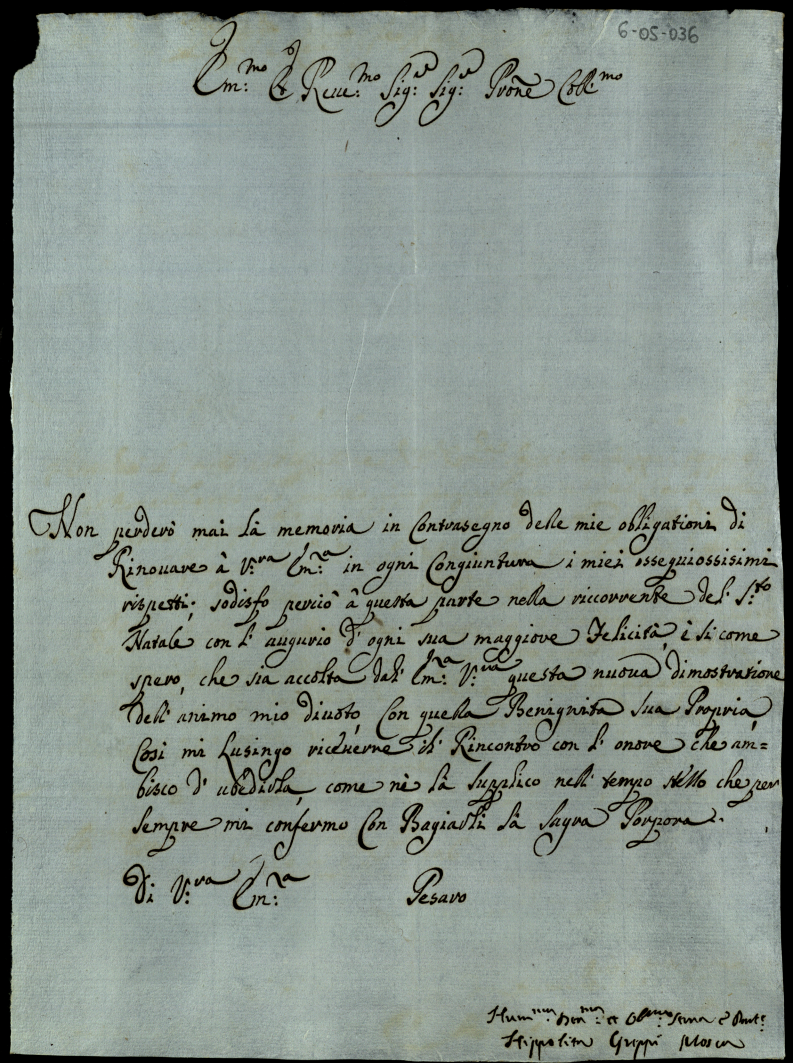 6-05-036
Em:mo e Reue:mo Sig:e Sig:e Prone Coll:mo
Non perderò mai là memoria in Contrasegno delle mie obligationi di
Rinouare à V:ra Em:a in ogni Congiuntura i miei ossequiossisimi
rispetti; sodisfo perciò à questa parte nella riccorrente del S:to
Natale con l' augurio d' ogni sua maggiore Felicità, è si come
spero, che sia accolta dall' Em:a V:ra questa nuoua dimostratione
dell' animo mio diuoto, Con quella Benignità sua Propria,
Cosi mi Lusingo riceuerne il' Rincontro con l' onore che am=
bisco d' ubedirla, come nè là supplico nell' tempo stesso che per
sempre mi confermo Con Bagiarli là sagra Porpora.
Di V:ra Em:a Pesaro
Hum:ma et Serua
Hippolita Grippi Mosca